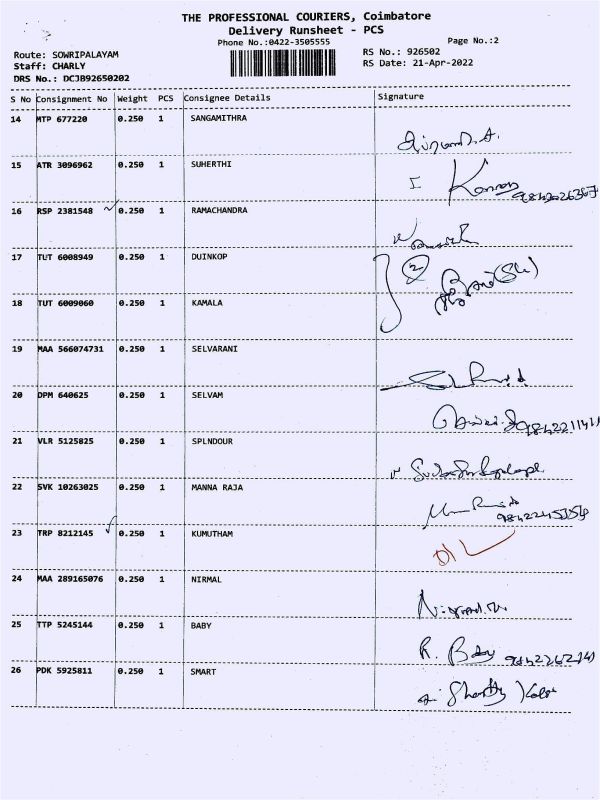 THE PROFESSIONAL COURIERS, Coimbatore
Delivery Runsheet - PCS
Phone No.:0422-3505555
Page No.:2
Route: SOWRIPALAYAM
Staff: CHARLY
DRS No.: DCJB92650202
RS No.: 926502
RS Date: 21-Apr-2022
S No Consignment No Weight PCS Consignee Details Signature
14 MTP 677220 0.250 1 SANGAMITHRA
15 ATR 3096962 0.250 1 SUHERTHI
16 RSP 2381548 0.250 1 RAMACHANDRA
17 TUT 6008949 0.250 1 DUINKOP
2
18 TUT 6009060 0.250 1 KAMALA
19 MAA 566074731 0.250 1 SELVARANI
20 DPM 640625 0.250 1 SELVAM
21 VLR 5125825 0.250 1 SPLNDOUR
22 SVK 10263025 0.250 1 MANNA RAJA
23 TRP 8212145 0.250 1 KUMUTHAM
D/L
24 MAA 289165076 0.250 1 NIRMAL
25 TTP 5245144 0.250 1 BABY
R. Baby
26 PDK 5925811 0.250 1 SMART